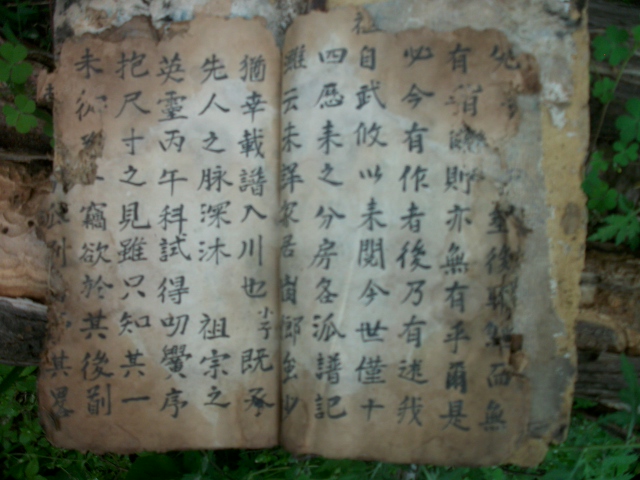 至後而無
有則亦無有乎爾是
必今有作者後乃有述我
祖自武攸以来閱今世僅十
四歷来之分房各派譜記
雖云未詳居少
猶幸載譜入川也小子既承
先人之脉深沐 祖宗之
英靈丙午科試得叨黌序
抱尺寸之見雖只知其一
未竊欲於其後創
其愚